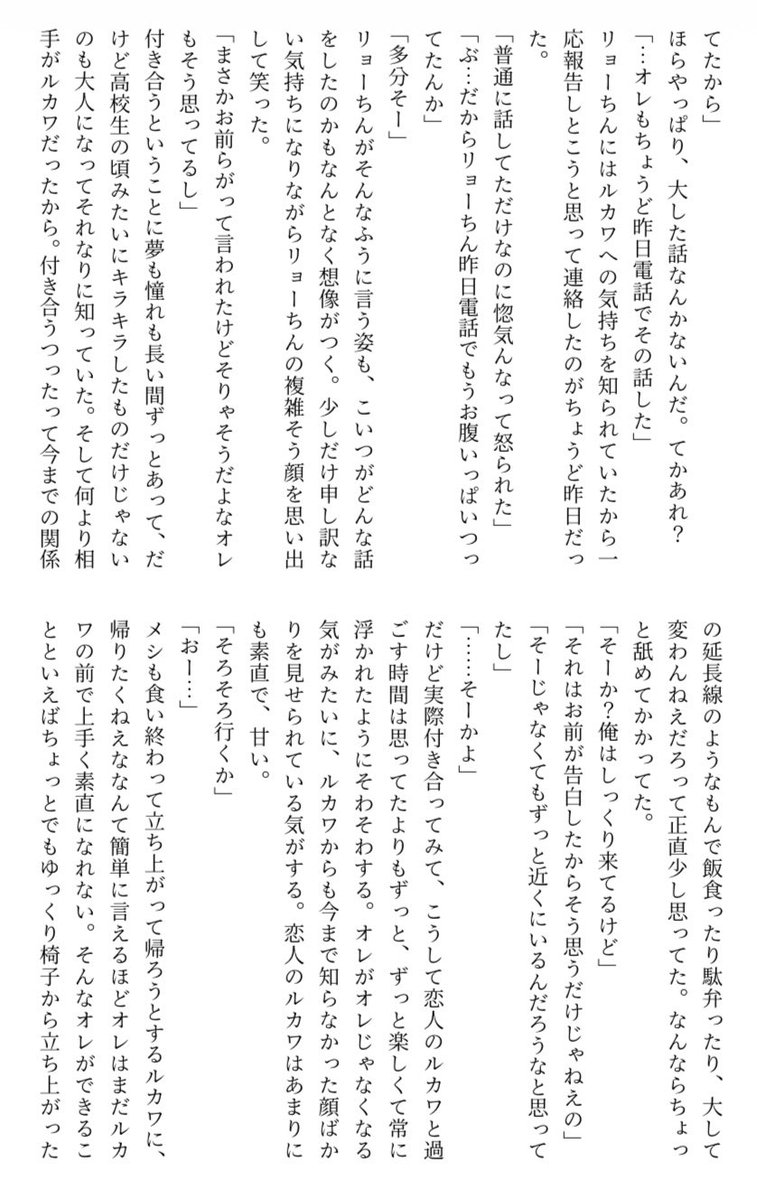 てたから」
ほらやっぱり、大した話なんかないんだ。てかあれ？
「…オレもちょうど昨日電話でその話した」
リョーちんにはルカワへの気持ちを知られていたから一
応報告しとこうと思って連絡したのがちょうど昨日だっ
た。
「普通に話してただけなのに惚気んなって怒られた」
「ぶ…だからリョーちん昨日電話でもうお腹いっぱいつっ
てたんか」
「多分そー」
リョーちんがそんなふうに言う姿も、こいつがどんな話
をしたのかもなんとなく想像がつく。少しだけ申し訳な
い気持ちになりながらリョーちんの複雑そう顔を思い出
して笑った。
「まさかお前らがって言われたけどそりゃそうだよなオレ
もそう思ってるし」
付き合うということに夢も憧れも長い間ずっとあって、だ
けど高校生の頃みたいにキラキラしたものだけじゃない
のも大人になってそれなりに知っていた。そして何より相
手がルカワだったから。付き合うつったって今までの関係
の延長線のようなもんで飯食ったり駄弁ったり、大して
変わんねえだろって正直少し思ってた。なんならちょっ
と舐めてかかってた。
「そーか？俺はしっくり来てるけど」
「それはお前が告白したからそう思うだけじゃねえの」
「そーじゃなくてもずっと近くにいるんだろうなと思って
たし」
「……そーかよ」
だけど実際付き合ってみて、こうして恋人のルカワと過
ごす時間は思ってたよりもずっと、ずっと楽しくて常に
浮かれたようにそわそわする。オレがオレじゃなくなる
気がみたいに、ルカワからも今まで知らなかった顔ばか
りを見せられている気がする。恋人のルカワはあまりに
も素直で、甘い。
「そろそろ行くか」
「おー…」
メシも食い終わって立ち上がって帰ろうとするルカワに、
帰りたくねえななんて簡単に言えるほどオレはまだルカ
ワの前で上手く素直になれない。そんなオレができるこ
とといえばちょっとでもゆっくり椅子から立ち上がった